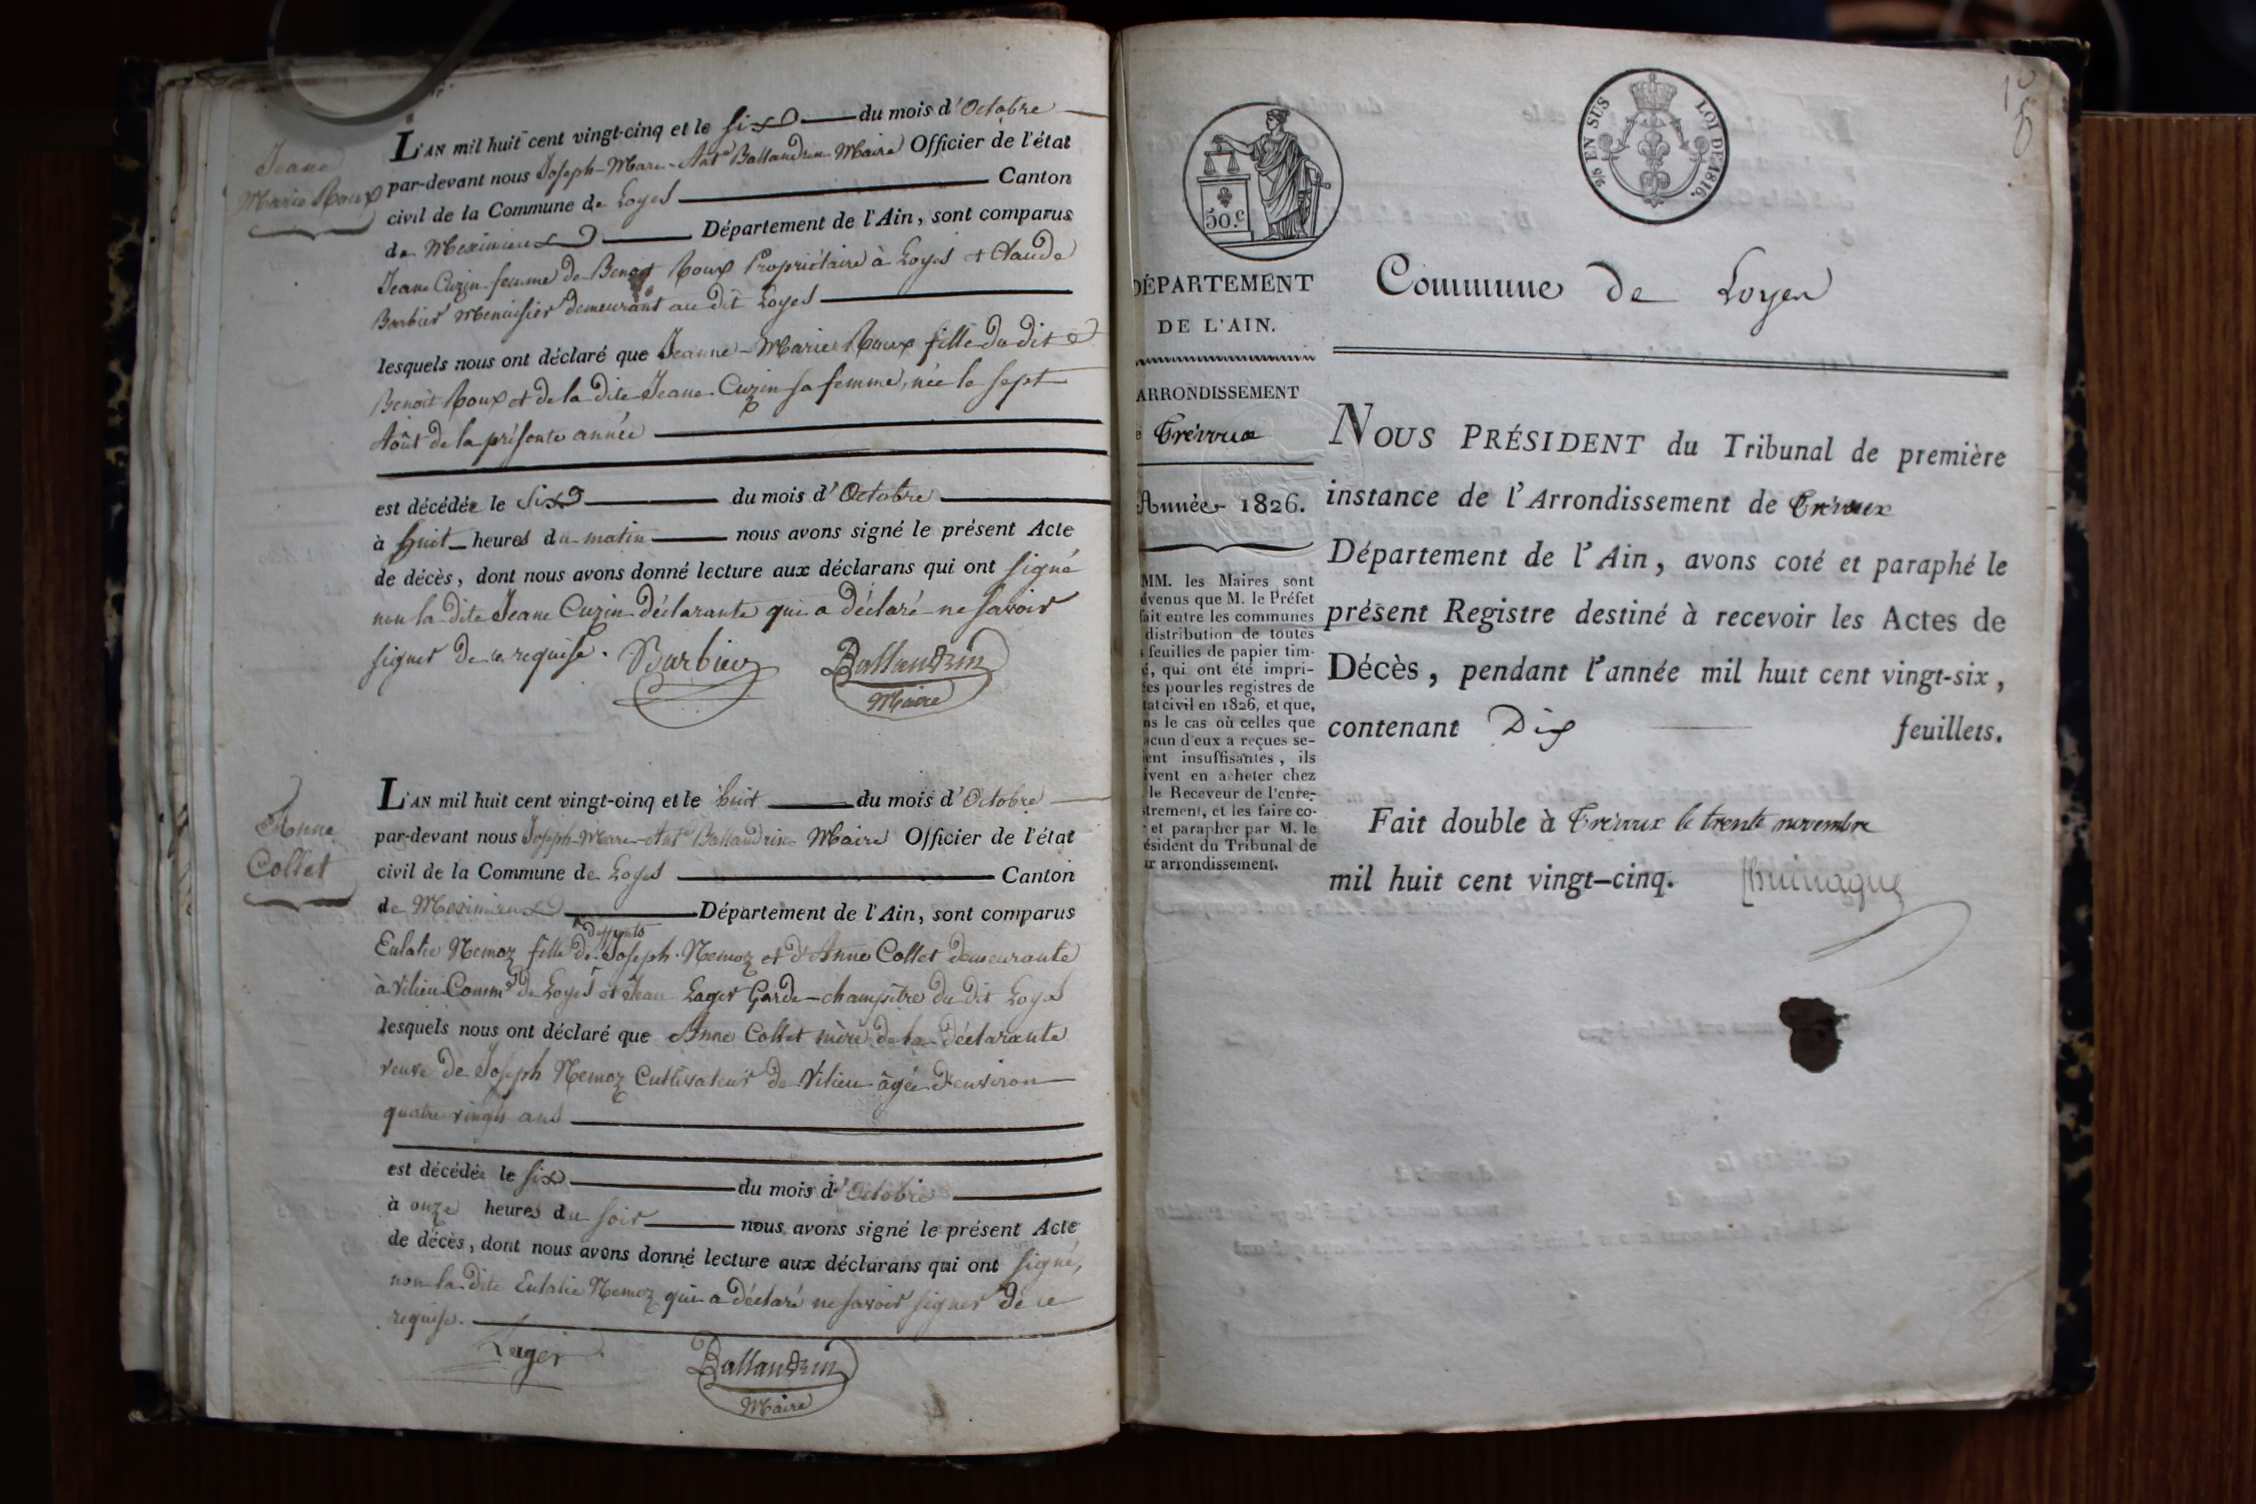 Jeane
Marie Roux
L'AN mil huit cent vingt-cinq et le six du mois d'Octobre
par-devant nous Joseph-Marie-Ant.e Ballandrin Maire Officier de l'état
civil de la Commune de Loyes Canton
de Meximieux Département de l'Ain, sont comparus
Jeane Cuzin femme de Benoit Roux Propriétaire à Loyes et Claude
Barbier Menuisier demeurant au dit Loyes
lesquels nous ont déclaré que Jeanne-Marie Roux fille du dit
Benoit Roux et de la dite Jeane Cuzin sa femme, née le sept
Août de la présente année
est décédée le six du mois d'Octobre
à huit heures du matin nous avons signé le présent Acte
de décès, dont nous avons donné lecture aux déclarans qui ont signé
non la dite Jeane Cuzin déclarante qui a déclaré ne savoir
signer de ce requise. Barbier Ballandrin
Maire
Anne
Collet
L'AN mil huit cent vingt-cinq et le huit du mois d'Octobre
par-devant nous Joseph-Marie-Ant.e Ballandrin Maire Officier de l'état
civil de la Commune de Loyes Canton
de Meximieux Département de l'Ain, sont comparus
deffunts
Eulalie Nemoz fille de Joseph Nemoz et d'Anne Collet demeurante
à Vilieu Comm.e de Loyes et Jean Lager Garde-champêtre du dit Loyes
lesquels nous ont déclaré que Anne Collet mère de la déclarante
veuve de Joseph Nemoz Cultivateur de Vilieu âgée d'environ
quatre vingts ans
est décédée le six du mois d'Octobre
à onze heures du soir nous avons signé le présent Acte
de décès, dont nous avons donné lecture aux déclarans qui ont signé,
non la dite Eulalie Nemoz qui a déclaré ne savoir signer de ce
requise.
Lager Ballandrin
Maire
50.c
EN SUS LOI DE 1816.
DÉPARTEMENT
DE L'AIN.
ARRONDISSEMENT
e Trévoux
Année 1826.
MM. les Maires sont
évenus que M. le Préfet
fait entre les communes
distribution de toutes
s feuilles de papier tim-
é, qui ont été impri-
ées pour les registres de
tat civil en 1826, et que,
ns le cas où celles que
acun d'eux a reçues se-
ient insuffisantes, ils
ivent en acheter chez
le Receveur de l'enre-
strement, et les faire co-
r et parapher par M. le
ésident du Tribunal de
ur arrondissement.
Commune de Loyes
NOUS PRÉSIDENT du Tribunal de première
instance de l'Arrondissement de Trévoux
Département de l'Ain, avons coté et paraphé le
présent Registre destiné à recevoir les Actes de
Décès, pendant l'année mil huit cent vingt-six,
contenant Dix feuillets.
Fait double à Trévoux le trente novembre
mil huit cent vingt-cinq.